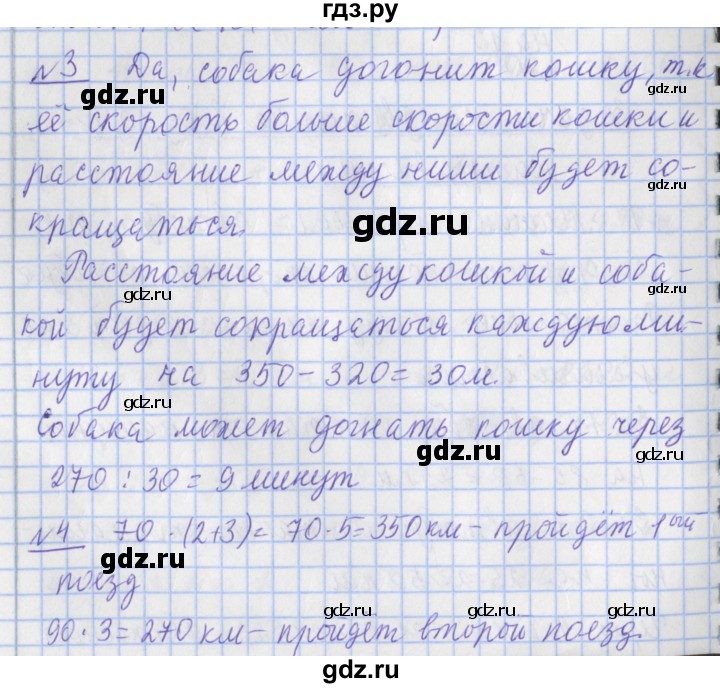 гдз.ру
№3 Да, собака догонит кошку, т.к
gdz.ru
gdz.ru
её скорость больше скорости кошки и
расстояние между ними будет со-
gdz.ru
gdz.ru
кращаться.
gdz.ru
Расстояние между кошкой и соба-
gdz.ru
gdz.ru
кой будет сокращаться каждую ми-
нуту на 350-320=30м.
gdz.ru
gdz.ru
Собака может догнать кошку через
gdz.ru
270:30=9 минут
gdz.ru
gdz.ru
№4 70·(2+3)=70·5=350км-пройдёт 1ый
поезд
gdz.ru
gdz.ru
90·3=270км-пройдет второй поезд.
gdz.ru
gdz.ru
gdz.ru